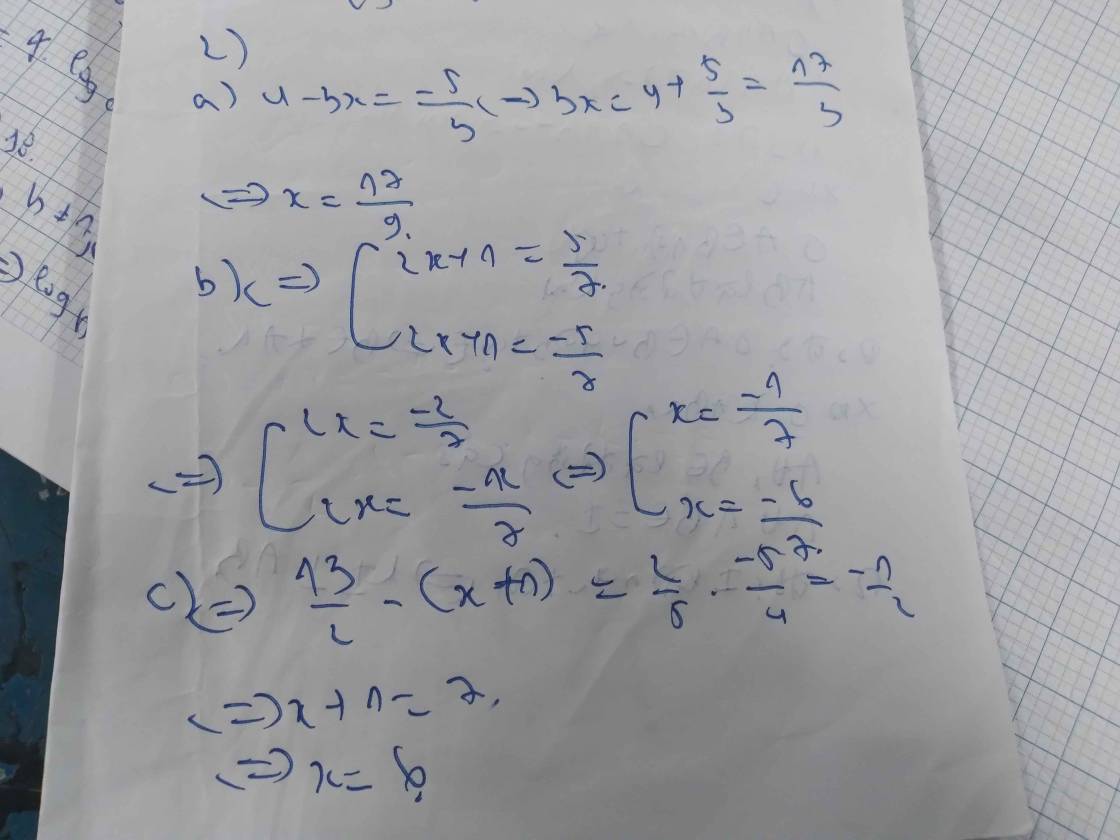 2)
a) 4 - 3x = -5/3 <=> 3x = 4 + 5/3 = 17/3
<=> x = 17/9.
b) <=> [ 2x+1 = 5/7.
2x+1 = -5/7
<=> [ 2x = -2/7 <=> [ x = -1/7
2x = -12/7 x = -6/7.
c) <=> 13/2 - (x+1) = 2/5 . -5/4 = -1/2
<=> x + 1 = 7.
<=> x = 6.
= 7. log
h + 1
=> log